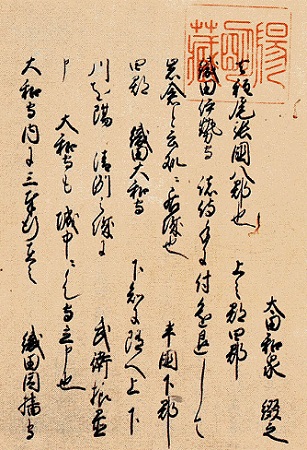 陽明蔵
太田和泉 綴之
去程尾張国八郡也 上之郡四郡
織田伊勢守 諸侍手に付進退して
岩倉と云処に居城也 半国下郡
四郡 織田大和守 下知に随へ上下
川を隔 清洲之城に 武衛様置
申 大和守も城中に候て守立申也
大和守内に三奉行在之 織田因幡守